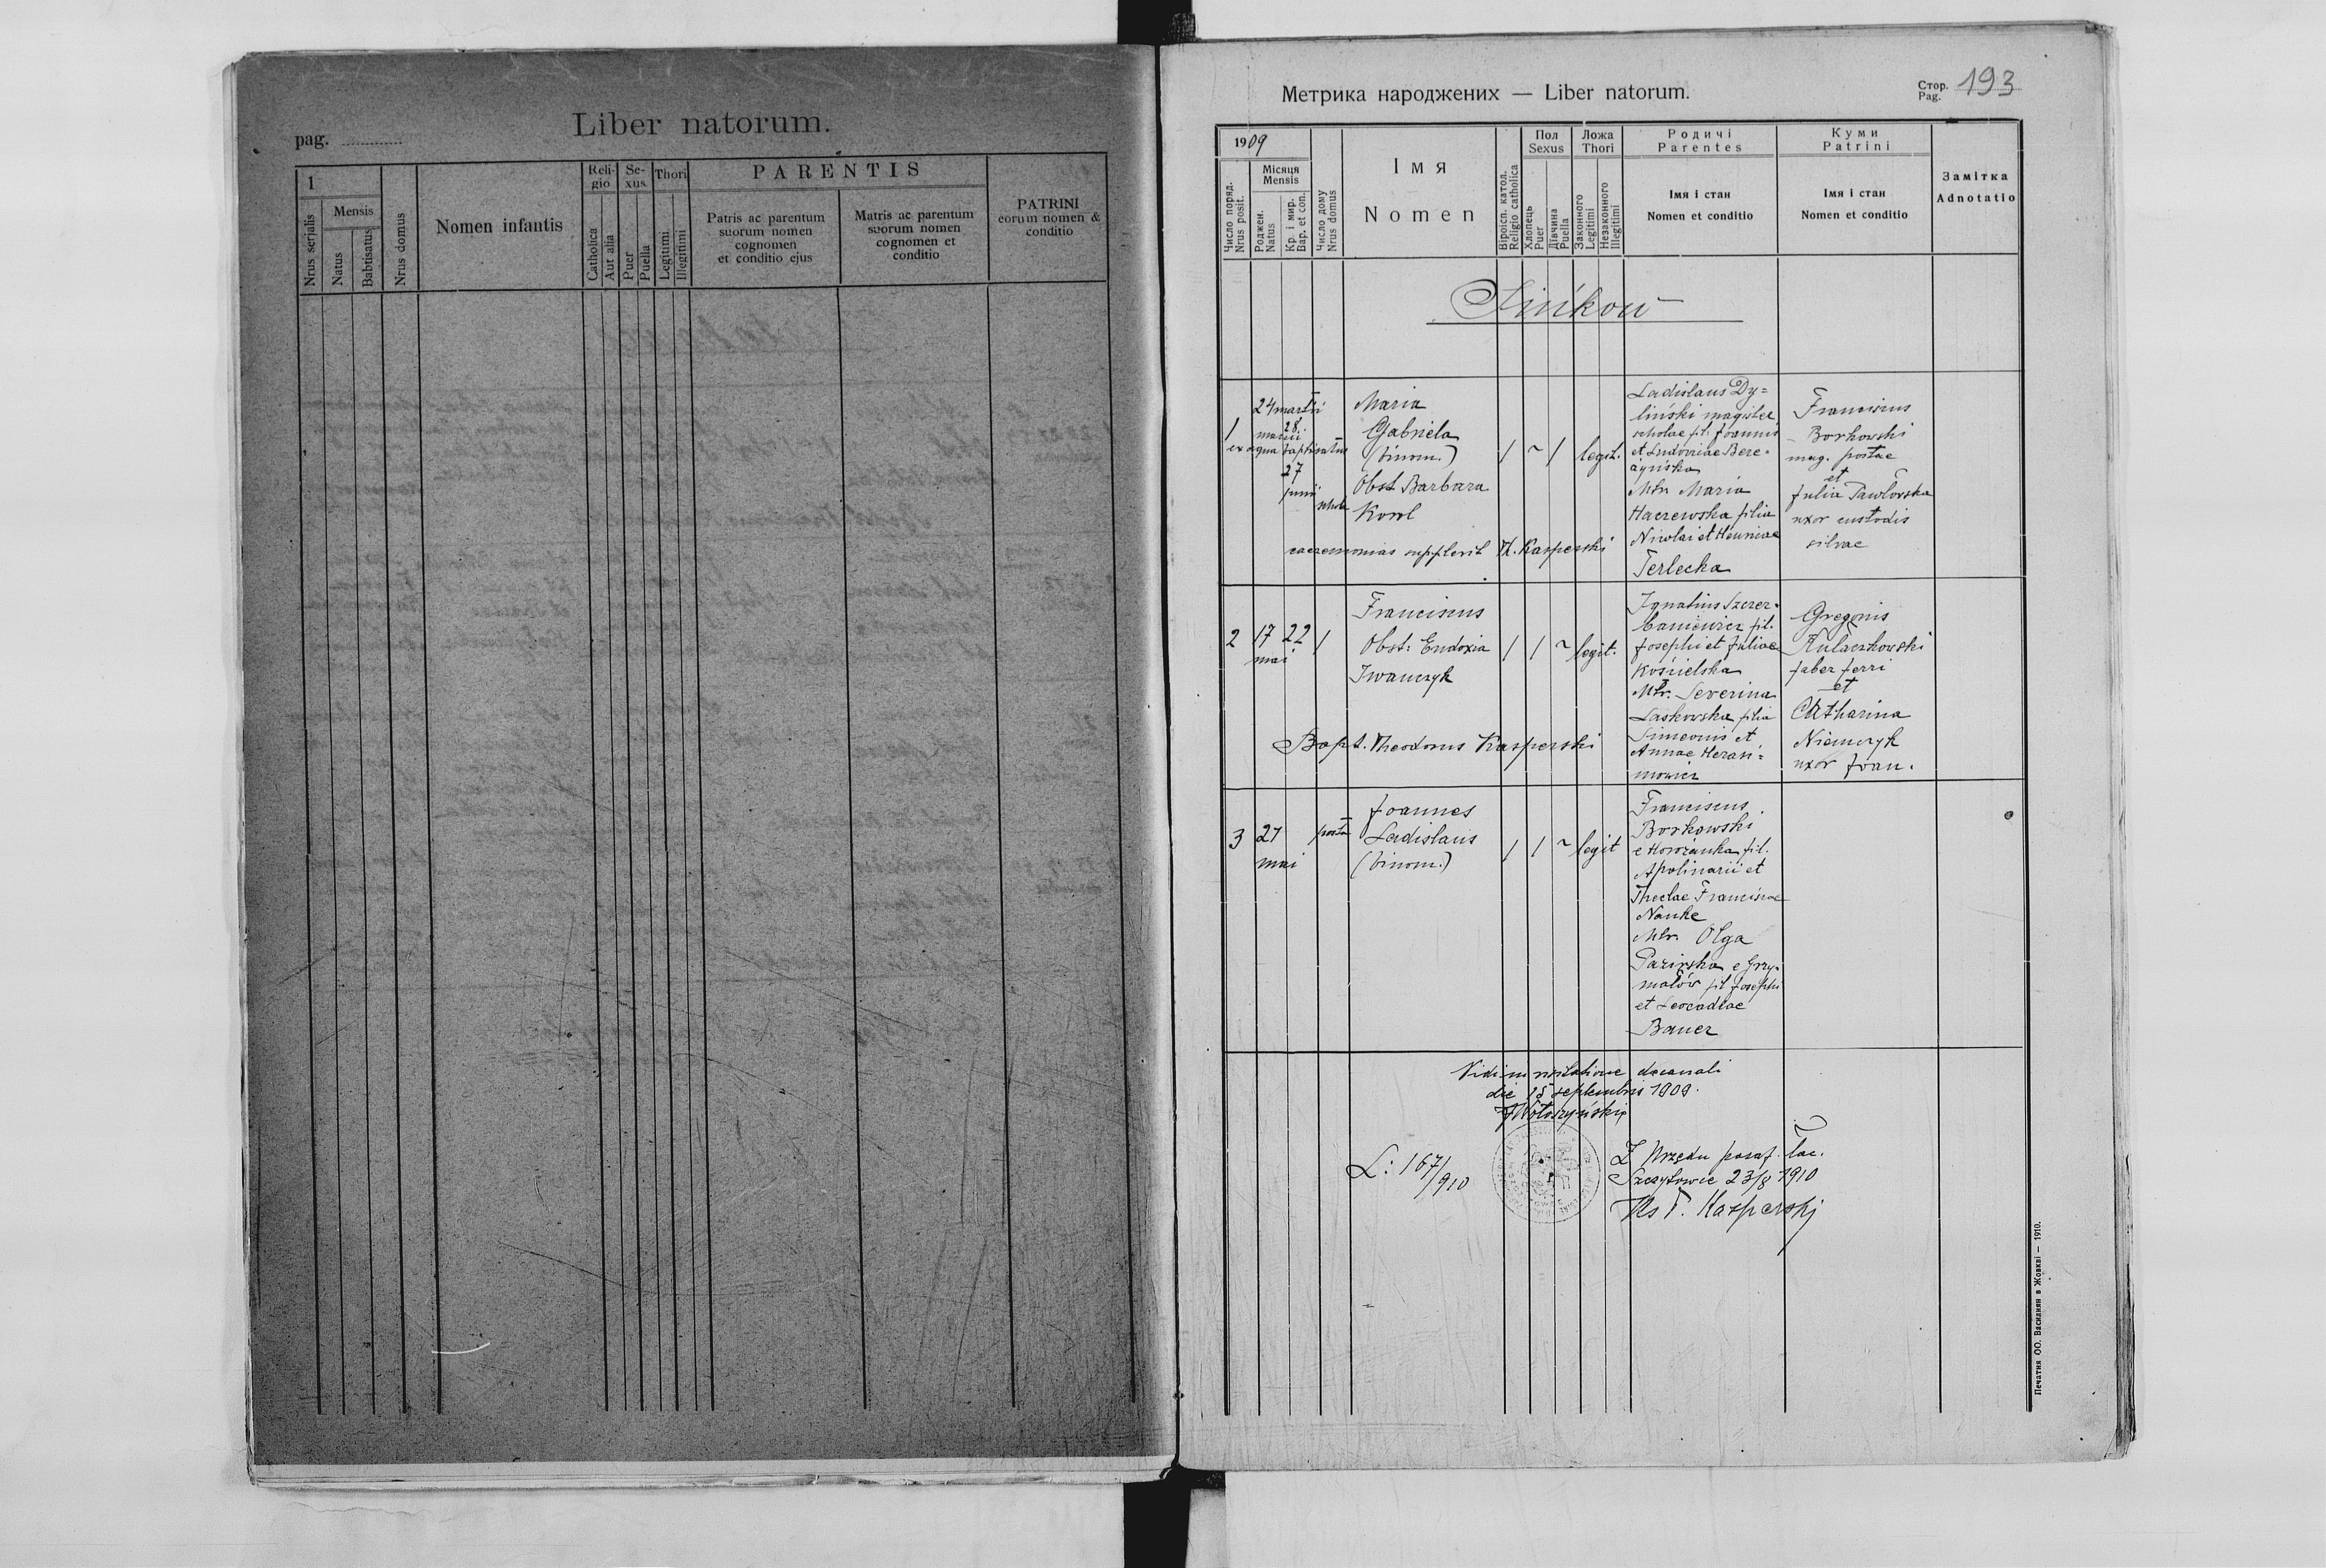 pag.
Liber natorum.
1
Mensis
Nrus serjalis
Natus
Babtisatus
Nrus domus
Nomen infantis
Reli-
gio
Catholica
Aut alia
Se-
xus
Puer
Puella
Thori
Legitumi
Illegitimi
PARENTIS
Patris ac parentum
suorum nomen
cognomen
et conditio ejus
Matris ac parentum
suorum nomen
cognomen et
conditio
PATRINI
eorum nomen &
conditio
Метрика народжених — Liber natorum.
Стор.
Pag.
193
1909
Число поряд.
Nrus posit.
Місяця
Mensis
Роджен.
Natus
Кр. і мир.
Bap. et con.
Число дому
Nrus domus
Імя
Nomen
Віроісп. катол.
Religio catholica
Пол
Sexus
Хлопець
Puer
Дівчина
Puella
Ложа
Thori
Законного
Legitimi
Незаконного
Illegitimi
Родичі
Parentes
Імя і стан
Nomen et conditio
Куми
Patrini
Імя і стан
Nomen et conditio
Замітка
Adnotatio
Sińkow
1
24 martii
28
martii
ex aqua baptisatus
27
junii
schola
Maria
Gabriela
(binom.)
Obst Barbara
Korol
/ ~ / legit.
caeremonias supplevit Th. Kasperski
Ladislaus Dy=
liński magister
scholae fil. Joannis
et Ludovicae Bere-
Mtr. Maria
Haczewska filia
Nicolai et
Terlecka
Franciscus
Borkowski
mag. postae
et
Julia Pawlovska
uxor custodis
silvae
2
17 22
mai
1
Franciscus
Obst: Eudoxia
Iwanczyk
/ / ~ legit.
Bapt. Theodorus Kasperski
Ignatius Szczer-
baniewicz fil.
Josephi et Juliae
Kościelska
Mtr. Severina
Laskowska filia
Simeonis et
Annae Herasi-
mowicz
Gregorius
Kulaczkowski
faber ferri
et
Catharina
Niemczyk
uxor Joan.
3
27
mai
posta
Joannes
Ladislaus
(binom.)
/ / ~ legit
Franciscus
Borkowski
e fil.
Apolinarii et
Theclae Franciscae
Nanke
Mtr. Olga
e Grzy-
małów fil Josephi
et Leocadiae
Bauer
Vidi in visitatione decanali
die 15 septembris 1909.
JWołoszyński
L: 167/910
Z Urzędu paraf. łac.
Szczytowce 23/8 1910
Ks T. Kasperski
Печатня ОО. Василиян в Жовкві — 1910.